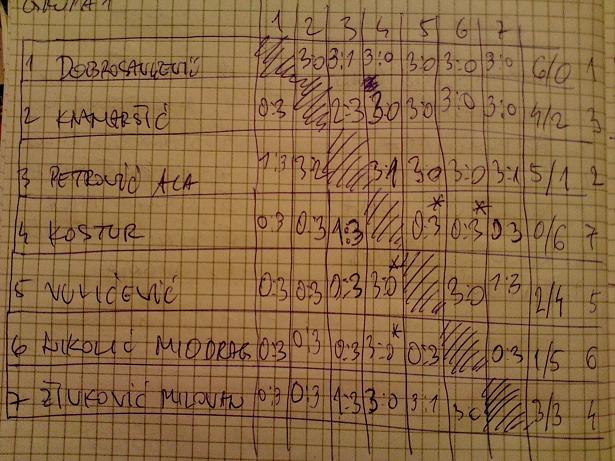 GRUPA 1
1 2 3 4 5 6 7
1 DOBROSAVLJEVIĆ 3:0 3:1 3:0 3:0 3:0 3:0 6/0 1
2 KNAMARŠIĆ 0:3 2:3 3:0 3:0 3:0 3:0 4/2 3
3 PETROVIĆ ACA 1:3 3:2 3:1 3:0 3:0 3:1 5/1 2
4 KOSTUR 0:3 0:3 1:3 0:3* 0:3* 0:3 0/6 7
5 VULIĆEVIĆ 0:3 0:3 0:3 3:0* 3:0 1:3 2/4 5
6 NIKOLIĆ MIODRAG 0:3 0:3 0:3 3:0* 0:3 0:3 1/5 6
7 ŽIVKOVIĆ MILOVAN 0:3 0:3 1:3 3:0 3:1 3:0 3/3 4